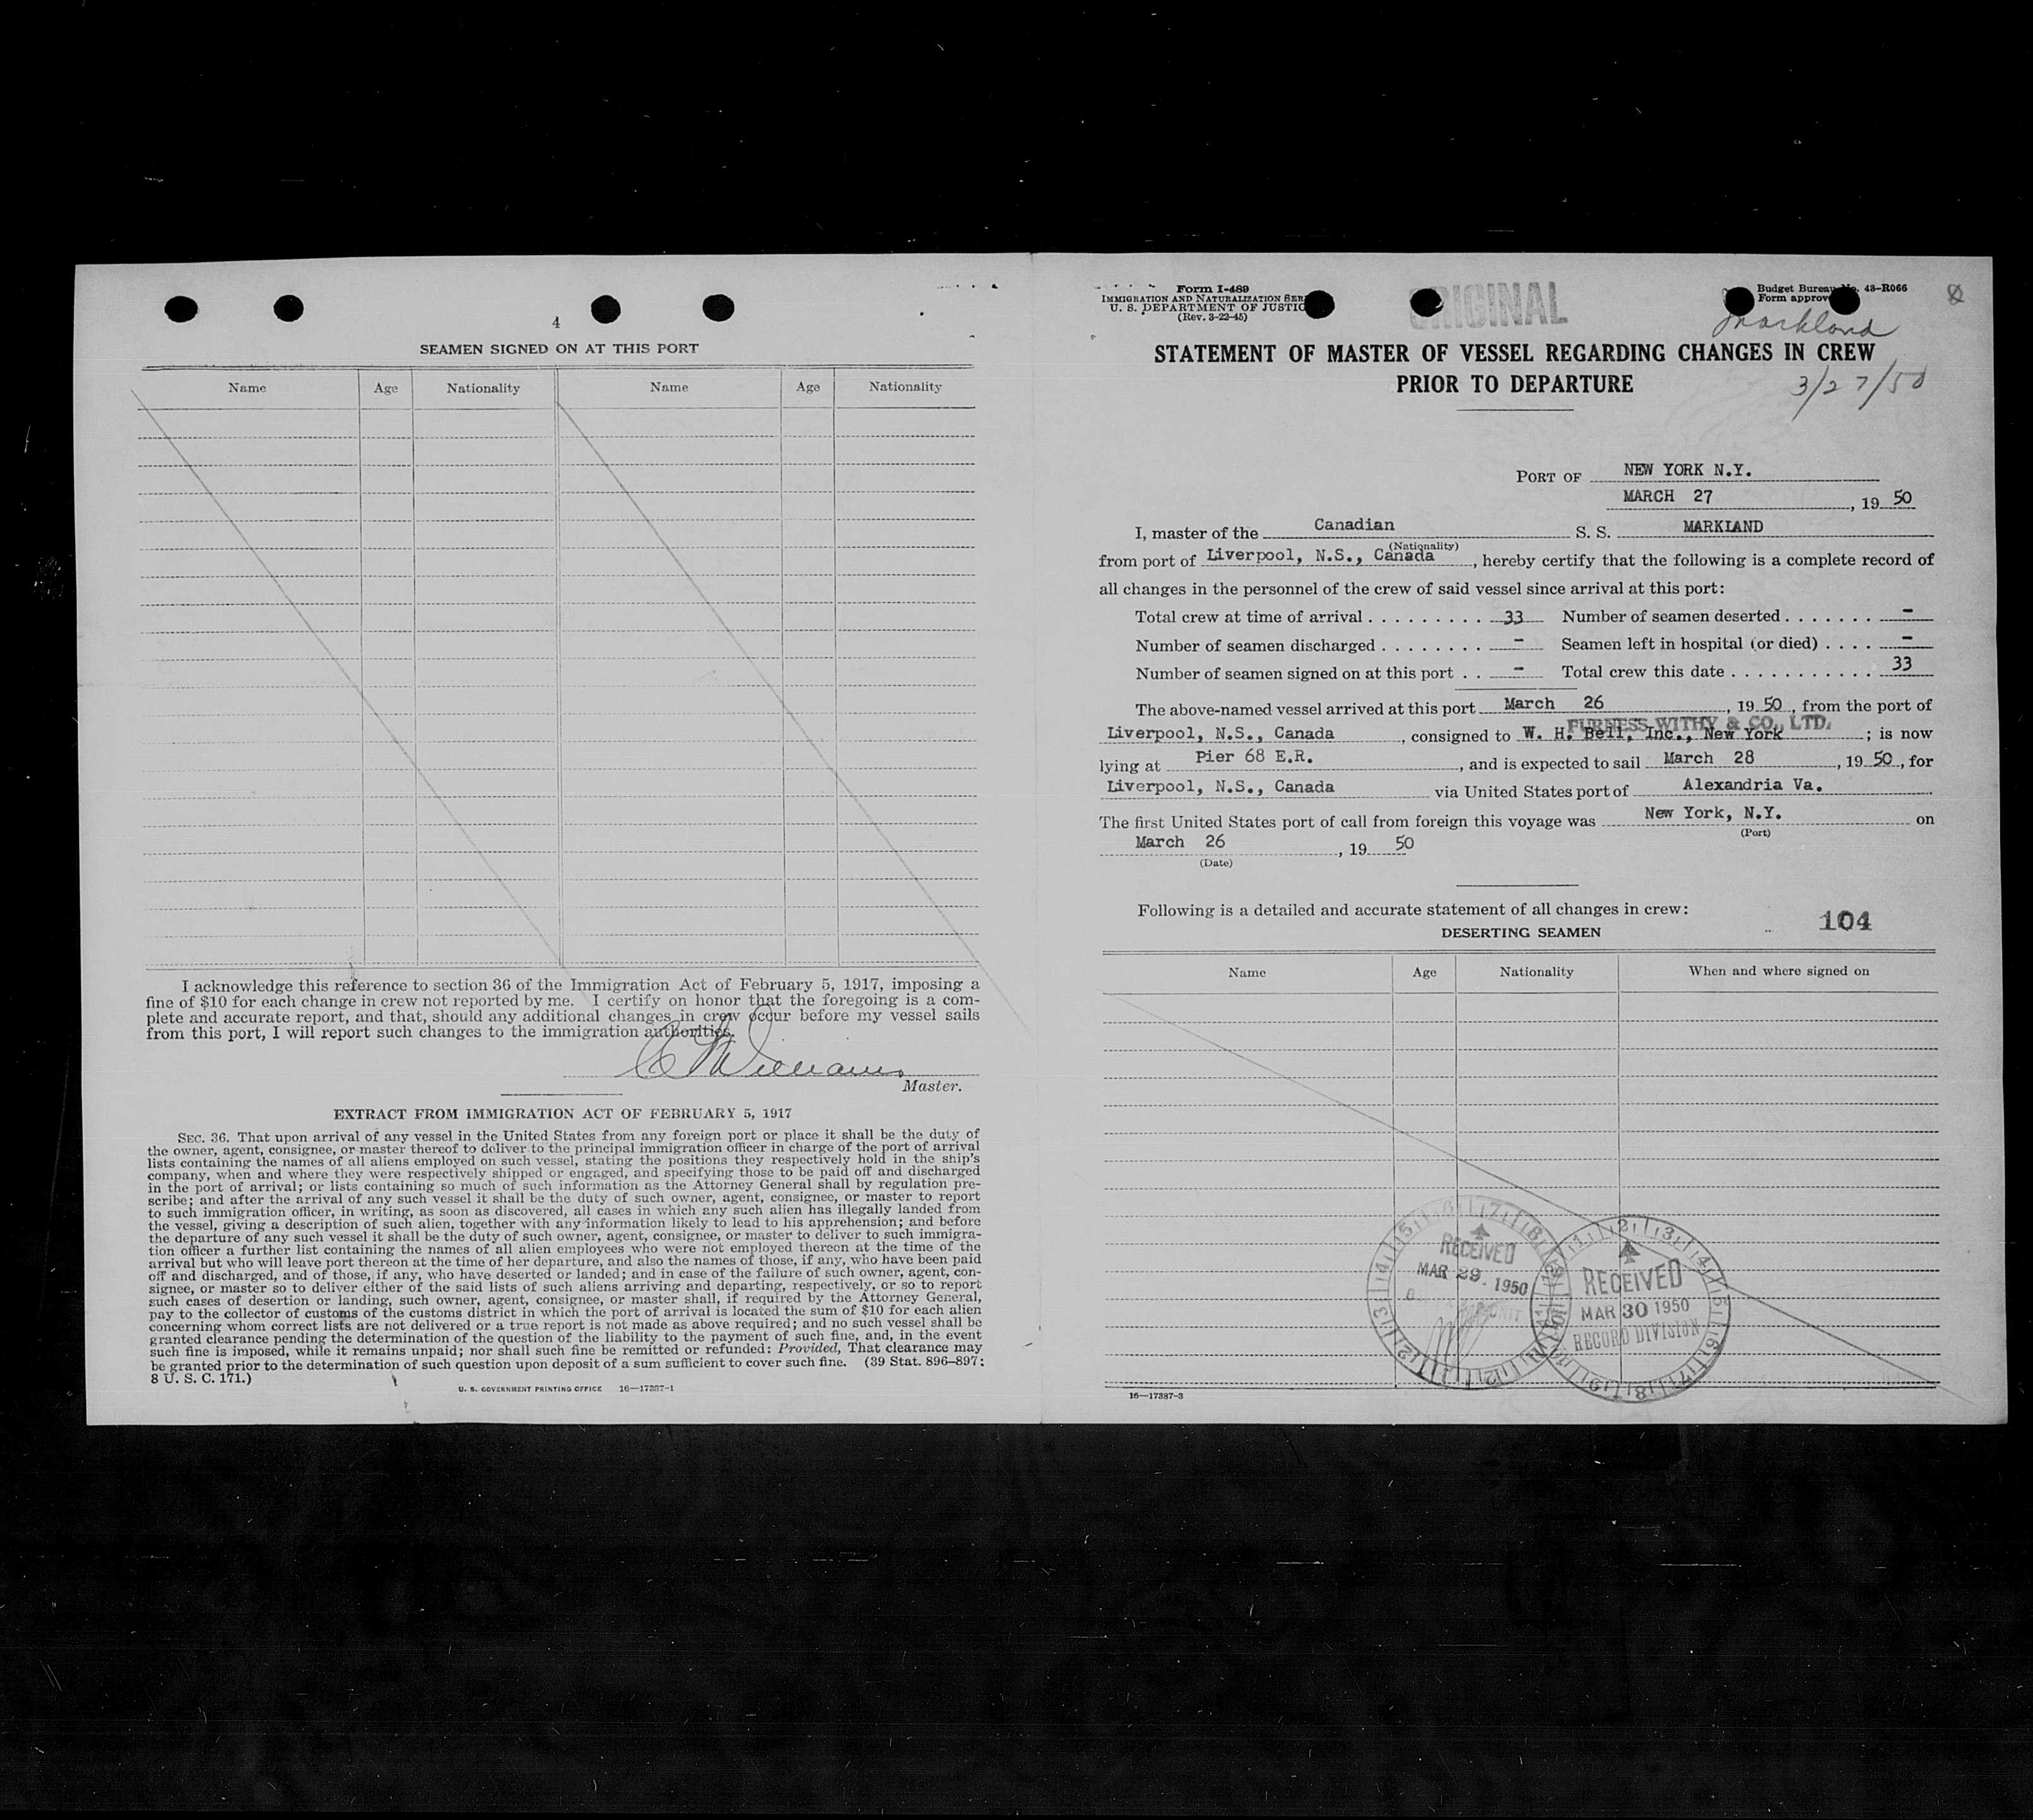 4
SEAMEN SIGNED ON AT THIS PORT
Name Age Nationality Name Age Nationality
I acknowledge this reference to section 36 of the Immigration Act of February 5, 1917, imposing a
fine of $10 for each change in crew not reported by me. I certify on honor that the foregoing is a com-
plete and accurate report, and that, should any additional changes in crew occur before my vessel sails
from this port, I will report such changes to the immigration authorities.
Williams
Master.
EXTRACT FROM IMMIGRATION ACT OF FEBRUARY 5, 1917
SEC. 36. That upon arrival of any vessel in the United States from any foreign port or place it shall be the duty of
the owner, agent, consignee, or master thereof to deliver to the principal immigration officer in charge of the port of arrival
lists containing the names of all aliens employed on such vessel, stating the positions they respectively hold in the ship's
company, when and where they were respectively shipped or engaged, and specifying those to be paid off and discharged
in the port of arrival; or lists containing so much of such information as the Attorney General shall by regulation pre-
scribe; and after the arrival of any such vessel it shall be the duty of such owner, agent, consignee, or master to report
to such immigration officer, in writing, as soon as discovered, all cases in which any such alien has illegally landed from
the vessel, giving a description of such alien, together with any information likely to lead to his apprehension; and before
the departure of any such vessel it shall be the duty of such owner, agent, consignee, or master to deliver to such immigra-
tion officer a further list containing the names of all alien employees who were not employed thereon at the time of the
arrival but who will leave port thereon at the time of her departure, and also the names of those, if any, who have been paid
off and discharged, and of those, if any, who have deserted or landed; and in case of the failure of such owner, agent, con-
signee, or master so to deliver either of the said lists of such aliens arriving and departing, respectively, or so to report
such cases of desertion or landing, such owner, agent, consignee, or master shall, if required by the Attorney General,
pay to the collector of customs of the customs district in which the port of arrival is located the sum of $10 for each alien
concerning whom correct lists are not delivered or a true report is not made as above required; and no such vessel shall be
granted clearance pending the determination of the question of the liability to the payment of such fine, and, in the event
such fine is imposed, while it remains unpaid; nor shall such fine be remitted or refunded: Provided, That clearance may
be granted prior to the determination of such question upon deposit of a sum sufficient to cover such fine. (39 Stat. 896–897;
8 U. S. C. 171.)
U. S. GOVERNMENT PRINTING OFFICE 16—17387-1
Form I-489
IMMIGRATION AND NATURALIZATION SER
U. S. DEPARTMENT OF JUSTIC
(Rev. 3-22-45)
ORIGINAL
Budget Bureau No. 43–R066
Form approve
Markland
STATEMENT OF MASTER OF VESSEL REGARDING CHANGES IN CREW
PRIOR TO DEPARTURE
3/27/50
PORT OF NEW YORK N.Y.
MARCH 27, 19 50
I, master of the Canadian S. S. MARKLAND
(Nationality)
from port of Liverpool, N.S., Canada, hereby certify that the following is a complete record of
all changes in the personnel of the crew of said vessel since arrival at this port:
Total crew at time of arrival . . . . . . . . . 33 Number of seamen deserted . . . . . . . -
Number of seamen discharged . . . . . . . . - Seamen left in hospital (or died) . . . . -
Number of seamen signed on at this port . . - Total crew this date . . . . . . . . . . . 33
The above-named vessel arrived at this port March 26, 19 50, from the port of
FURNESS WITHY & CO., LTD.
Liverpool, N.S., Canada, consigned to W. H. Bell, Inc., New York; is now
lying at Pier 68 E.R., and is expected to sail March 28, 19 50, for
Liverpool, N.S., Canada via United States port of Alexandria Va.
The first United States port of call from foreign this voyage was New York, N.Y. on
(Port)
March 26, 19 50
(Date)
Following is a detailed and accurate statement of all changes in crew:
104
DESERTING SEAMEN
Name Age Nationality When and where signed on
RECEIVED
MAR 29. 1950
RECEIVED
MAR 30 1950
RECORD DIVISION
16—17387-3